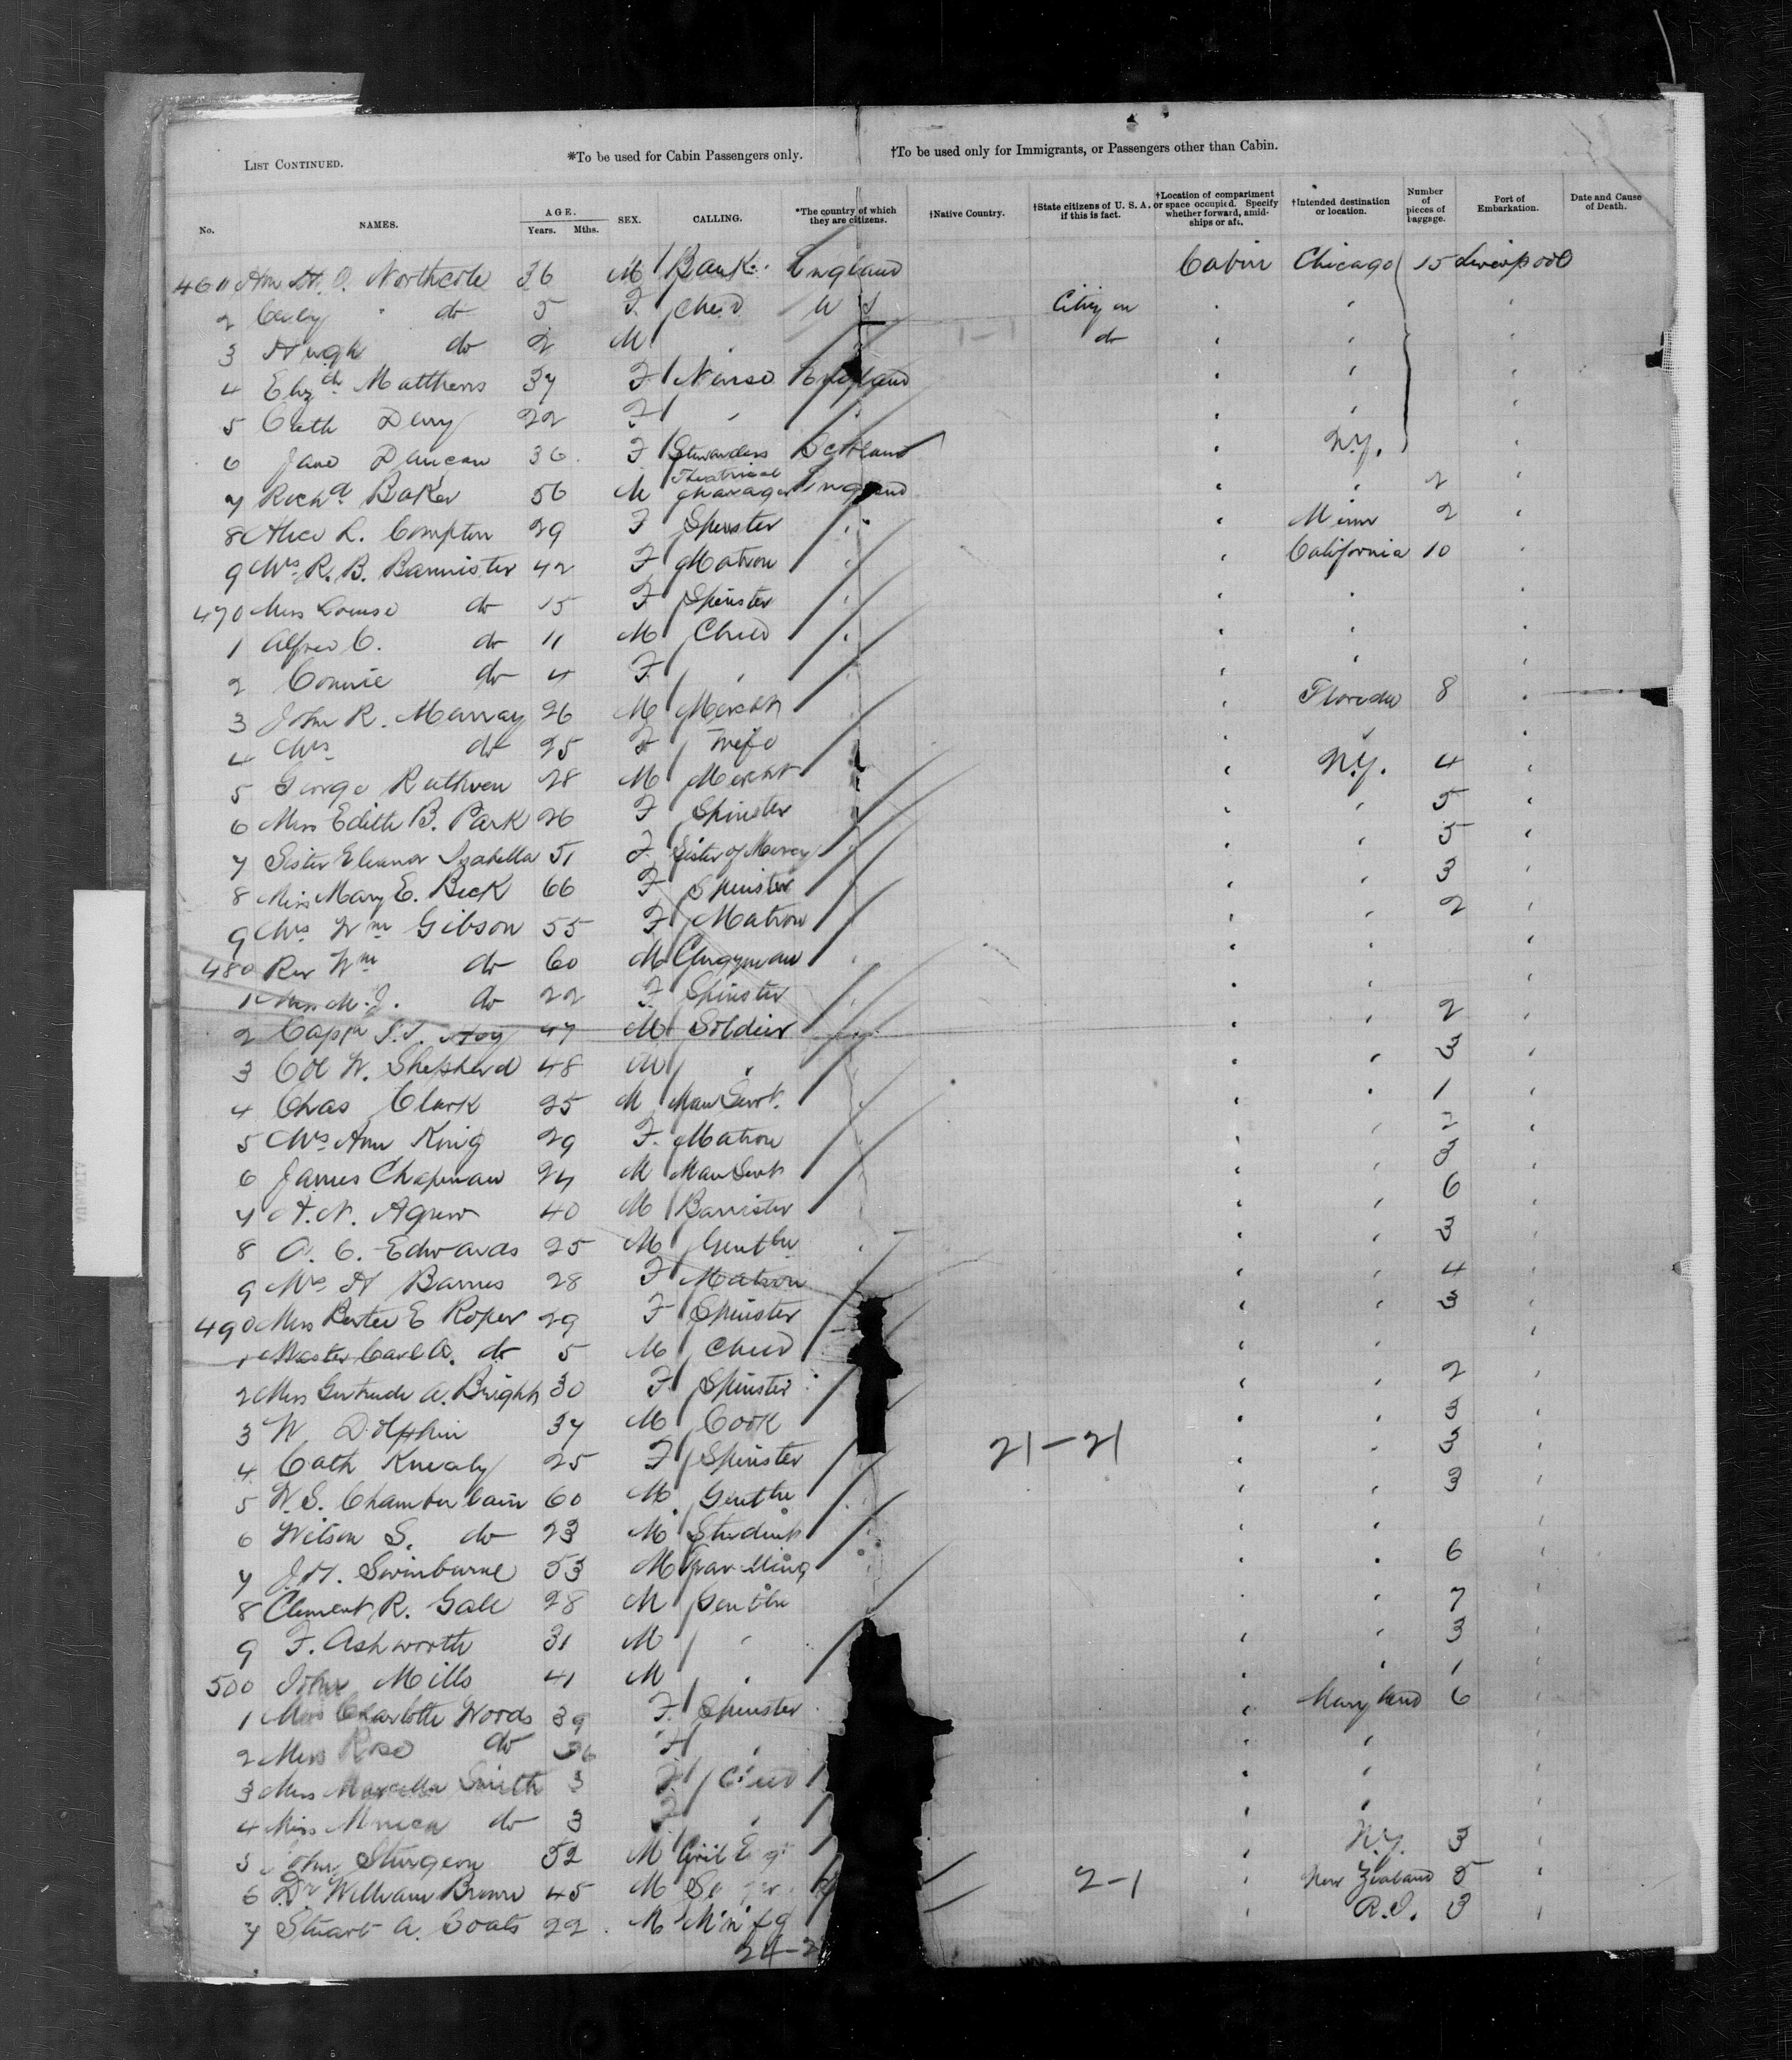 LIST CONTINUED. *To be used for Cabin Passengers only. †To be used only for Immigrants, or Passengers other than Cabin.
No. NAMES. AGE. Years. Mths. SEX. CALLING. *The country of which they are citizens. †Native Country. †State citizens of U. S. A. if this is fact. †Location of compartment or space occupied. Specify whether forward, amidships or aft. †Intended destination or location. Number of pieces of baggage. Port of Embarkation. Date and Cause of Death.
Northcote 36 M England Cabin Chicago 15 Liverpool
2 do 5 F. Child U S
3 Hugh do 2 M do
4 Matthews 37 F Nurse England
5 Cath 22 F
6 Jane Duncan 36 F Stewardess Scotland N.Y.
7 Richd Baker 56 M Theatrical Manager England 2
8 Alice L. Compton 29 F Spinster Minn 2
9 Mrs R. B. Bannister 42 F Matron California 10
470 Miss Louise do 15 F Spinster
1 Alfred C. do 11 M Child
2 Connie do 4 F
3 John R. Murray 26 M Mercht Florida 8
4 Mrs do 25 F Wife
5 George Ruthven 28 M Mercht N.Y. 4
6 Miss Edith B. Park 26 F Spinster 5
7 Sister Eleanor Izabella 51 F. Sister of Mercy 5
8 Miss Mary E. Beck 66 F Spinster 3
9 Mrs Wm Gibson 55 F Matron 2
480 Rev Wm do 60 M Clergyman
1 Miss M. J. do 22 F Spinster
2 47 M Soldier 2
3 Col W. Shepherd 48 M 3
4 Chas Clark 25 M Man Servt. 1
5 Mrs Ann King 29 F. Matron 2
6 James Chapman 24 M Man Servt 3
7 Agnew 40 M Barrister 6
8 Edwards 25 M Gentln 3
9 Mrs H Barnes 28 F Matron 4
490 Miss E Roper 29 F Spinster 3
1 Master Carl A. do 5 M Child
2 Miss Gertrude A. Bright 30 F Spinster 2
3 W Dolphin 37 M Cook 3
4 Cath 25 F Spinster 21-21 3
5 W. S. Chamberlain 60 M Gentln 3
6 Wilson S. do 23 M Student
7 J. H. Swinburne 53 M Travelling 6
8 Clement R. Gale 28 M Gentln 7
9 F. Ashworth 31 M 3
500 John Mills 41 M 1
1 Miss Charlotte Woods 39 F. Spinster Maryland 6
2 Miss Rose do F
3 Miss Smith 3 F. Child
4 Miss do 3 F
5 John Sturgeon 52 M Civil N.Y. 3
6 Dr William Brown 45 M 2-1 New Zealand 5
7 Stuart A. Coats 22 M R.I. 3